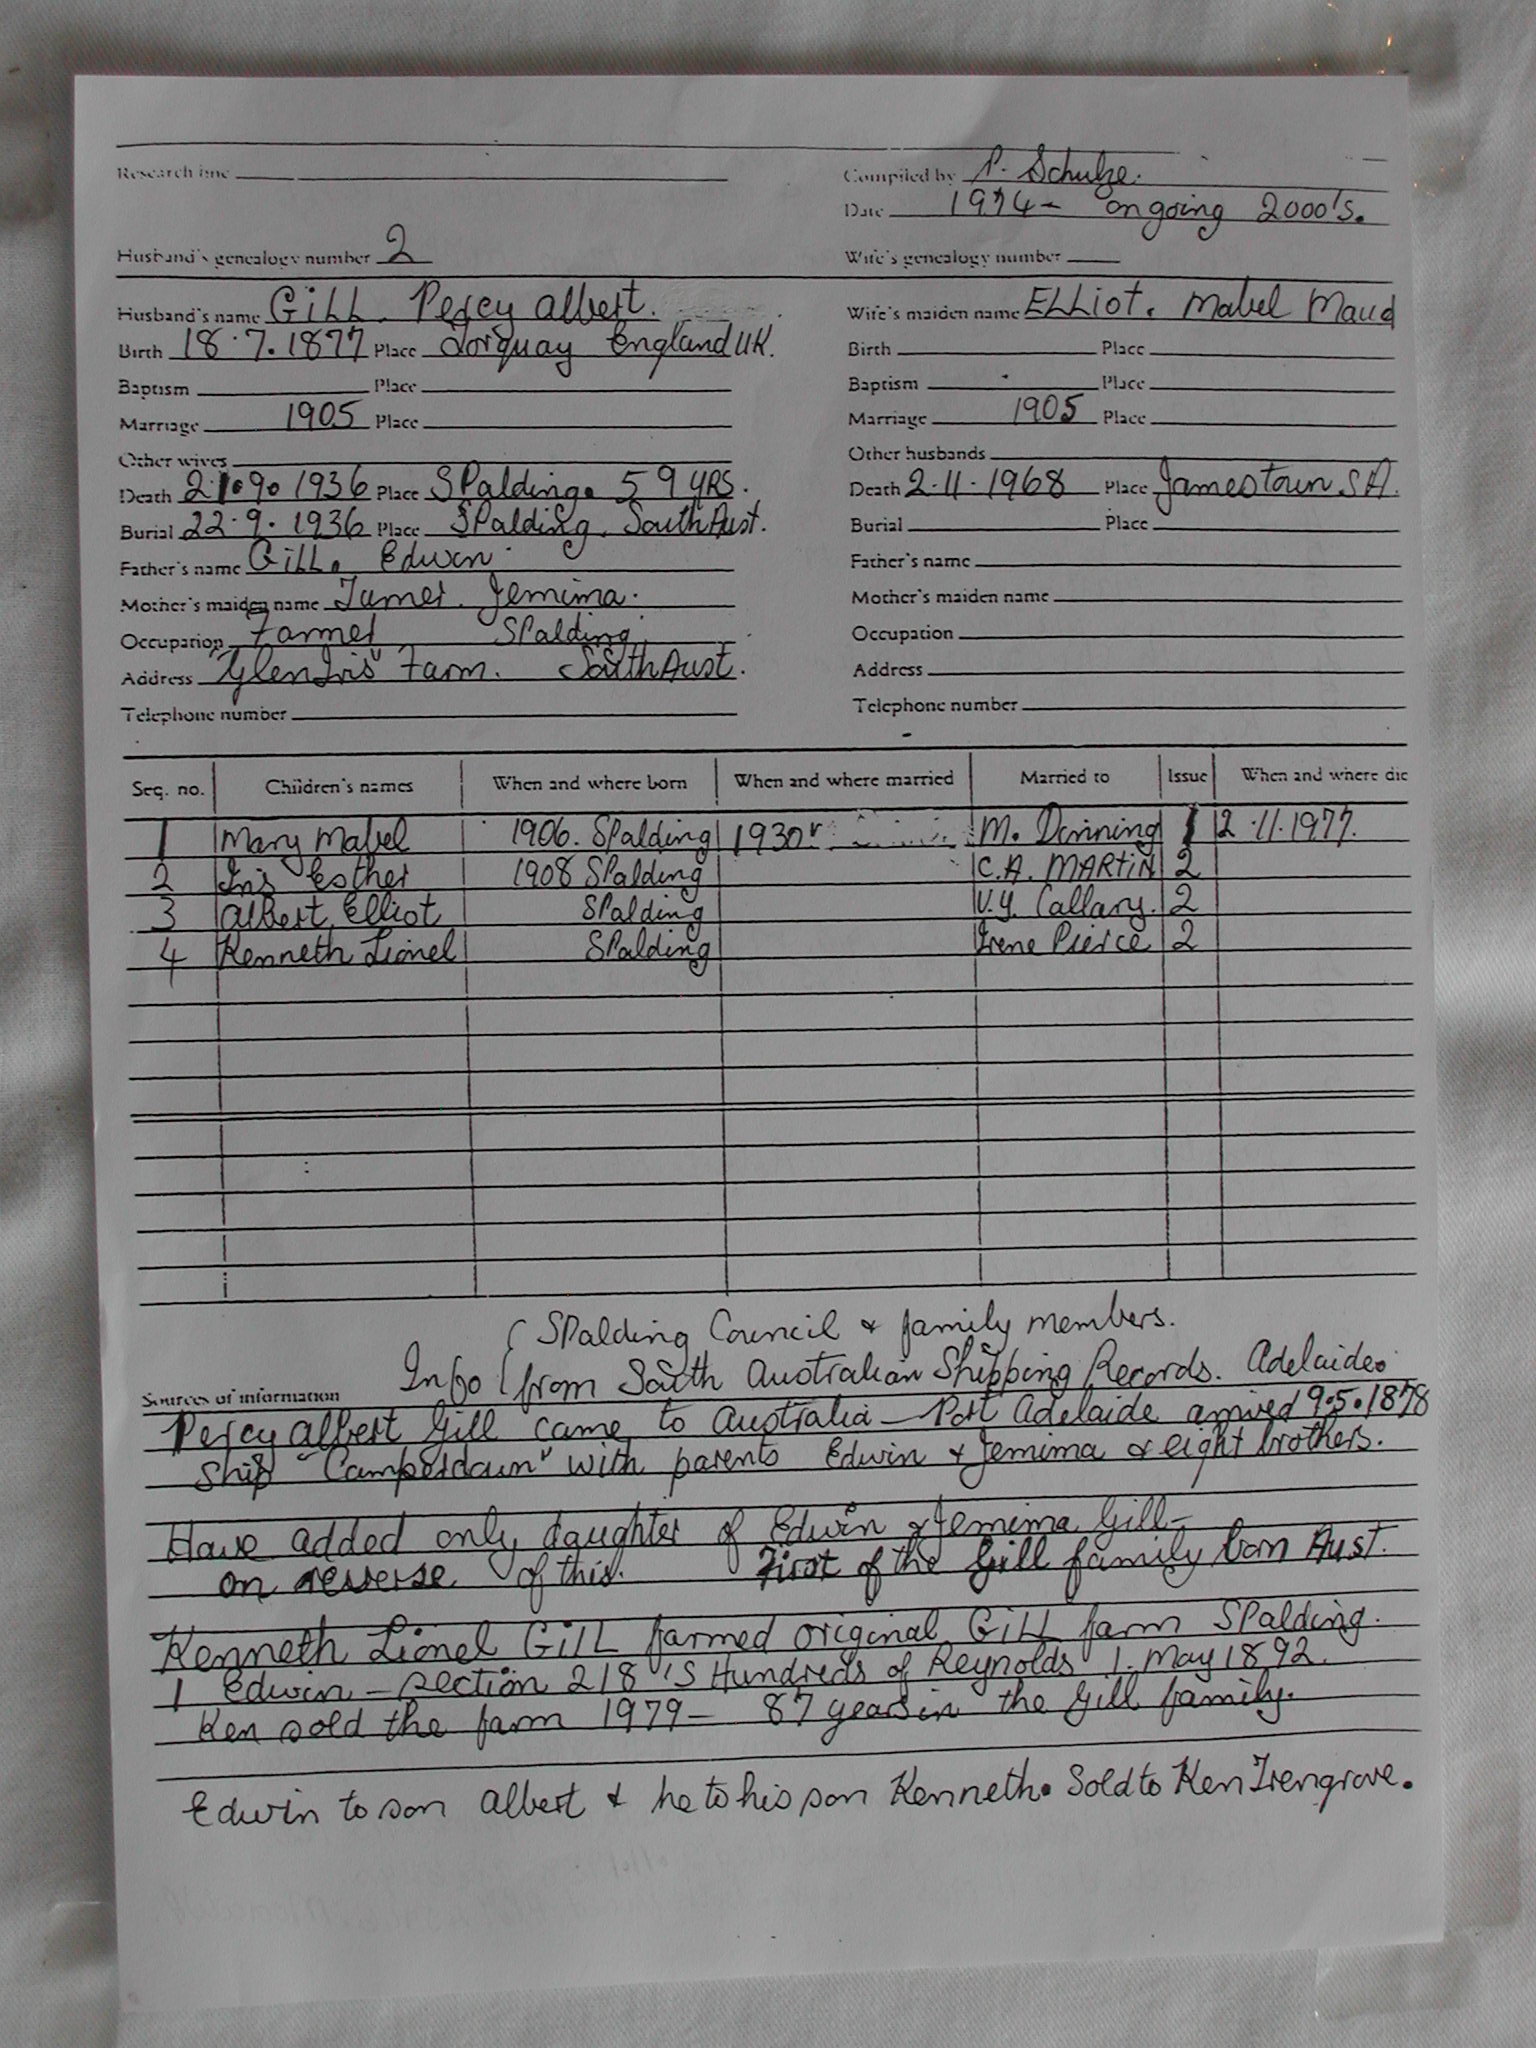 Research line
Compiled by P. Schulze.
Date 1974 - ongoing 2000's.
Husband's genealogy number 2
Wife's genealogy number
Husband's name GiLL. Percy Albert.
Wife's maiden name ELLiot. Mabel Maud
Birth 18.7.1877 Place Torquay England UK.
Birth Place
Baptism Place
Baptism Place
Marriage 1905 Place
Marriage 1905 Place
Other wives
Other husbands
Death 21.9.1936 Place SPalding. 59 YRS.
Death 2.11.1968 Place Jamestown S.A.
Burial 22.9.1936 Place SPalding. South Aust.
Burial Place
Father's name GiLL. Edwin.
Father's name
Mother's maiden name Jemima.
Mother's maiden name
Occupation Farmer SPalding.
Occupation
Address "Glen Iris" Farm. South Aust.
Address
Telephone number
Telephone number
Seq. no. Children's names When and where born When and where married Married to Issue When and where die
1 Mary Mabel 1906. SPalding 1930 M. Dinning 1 2.11.1977.
2 Iris Esther 1908 SPalding C.A. MARTiN 2
3 Albert Elliot SPalding V.Y. Callary. 2
4 Kenneth Lionel SPalding Irene Pierce 2
( SPalding Council & family members.
Info ( from South Australian Shipping Records. Adelaide.
Sources of information
Percy Albert Gill came to Australia - Port Adelaide arrived 9.5.1878
Ship "Camperdown" with parents Edwin & Jemima & eight brothers.
Have added only daughter of Edwin & Jemima Gill -
on reverse of this. First of the Gill family born Aust.
Kenneth Lionel GiLL farmed original GiLL farm SPalding.
1 Edwin - section 218 'S Hundreds of Reynolds 1. May 1892.
Ken sold the farm 1979 - 87 years in the Gill family.
Edwin to son Albert & he to his son Kenneth. Sold to Ken Trengrove.